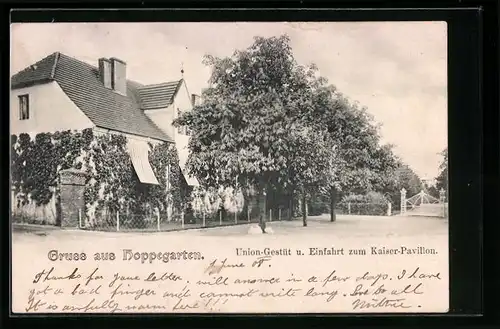 Gruss aus Hoppegarten.
Union-Gestüt u. Einfahrt zum Kaiser-Pavillon.
9 June 05.
Thanks for your letter, will answer in a few days. I have
got a bad finger and cannot write long. Love to all
It is awfully warm here!!!